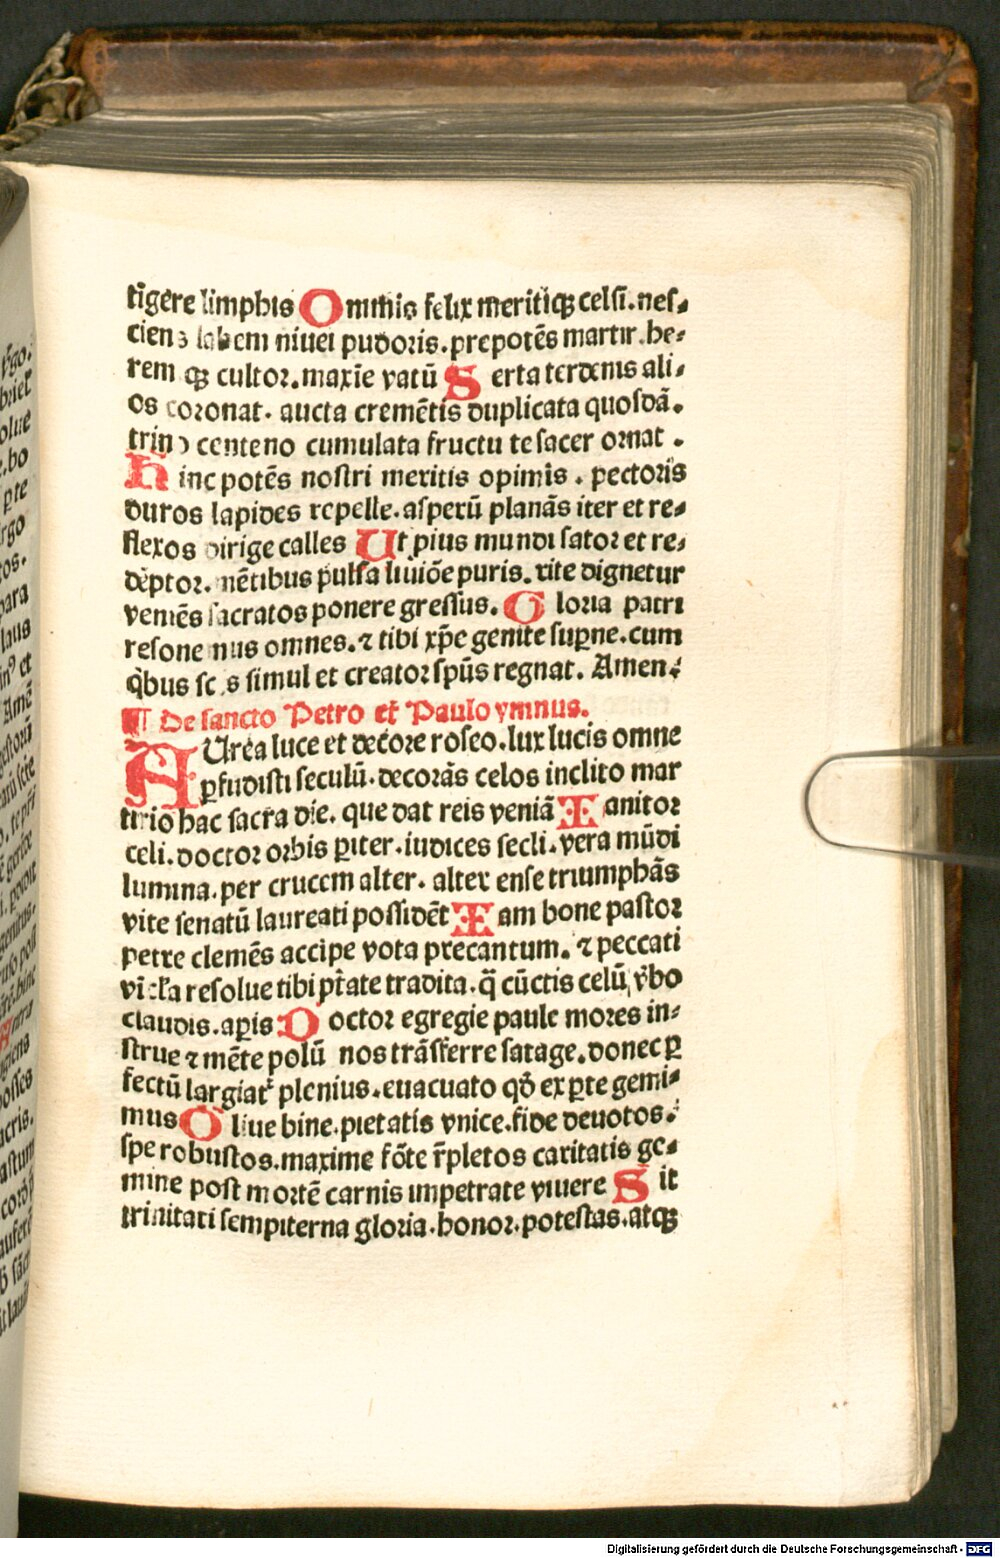 tīgere limphis O nimis felix meritiqꝫ celsi. nes⸗
ciens labem niuei pudoris. prepotēs martir. he⸗
rem qꝫ cultor. maxīe vatū S erta terdenis ali⸗
os coronat. aucta cremētis duplicata quosdā.
trino centeno cumulata fructu te sacer ornat.
H inc potēs nostri meritis opimis. pectoris
duros lapides repelle. asperū planās iter et re⸗
flexos dirige calles Ut pius mundi sator et re⸗
dēptor. mētibus pulsa liuiōe puris. rite dignetur
veniēs sacratos ponere gressus. G loria patri
resonemus omnes. ⁊ tibi xp̄e genite suꝑne. cum
q̇bus scūs simul et creator spūs regnat. Amen.
¶ De sancto Petro et Paulo ymnus.
AUrea luce et decore roseo. lux lucis omne
ꝑfudisti seculū. decorās celos inclito mar
tirio hac sacra die. que dat reis veniā I anitor
celi. doctor orbis ꝑiter. iudices secli. vera mūdi
lumina. per crucem alter. alter ense triumphās
vite senatū laureati possidēt I am bone pastor
petre clemēs accipe vota precantum. ⁊ peccati
vīcla resolue tibi pt̄ate tradita. q̄ cūctis celū v̄bo
claudis. aꝑis D octor egregie paule mores in⸗
strue ⁊ mēte polū nos trāsferre satage. donec ꝑ
fectū largiat᷑ plenius. euacuato qđ ex ꝑte gemi⸗
mus O liue bine. pietatis vnice. fide deuotos.
spe robustos. maxime fōte r̄pletos caritatis ge⸗
mine post mortē carnis impetrate viuere S it
trinitati sempiterna gloria. honor. potestas. atqꝫ
Digitalisierung gefördert durch die Deutsche Forschungsgemeinschaft - DFG